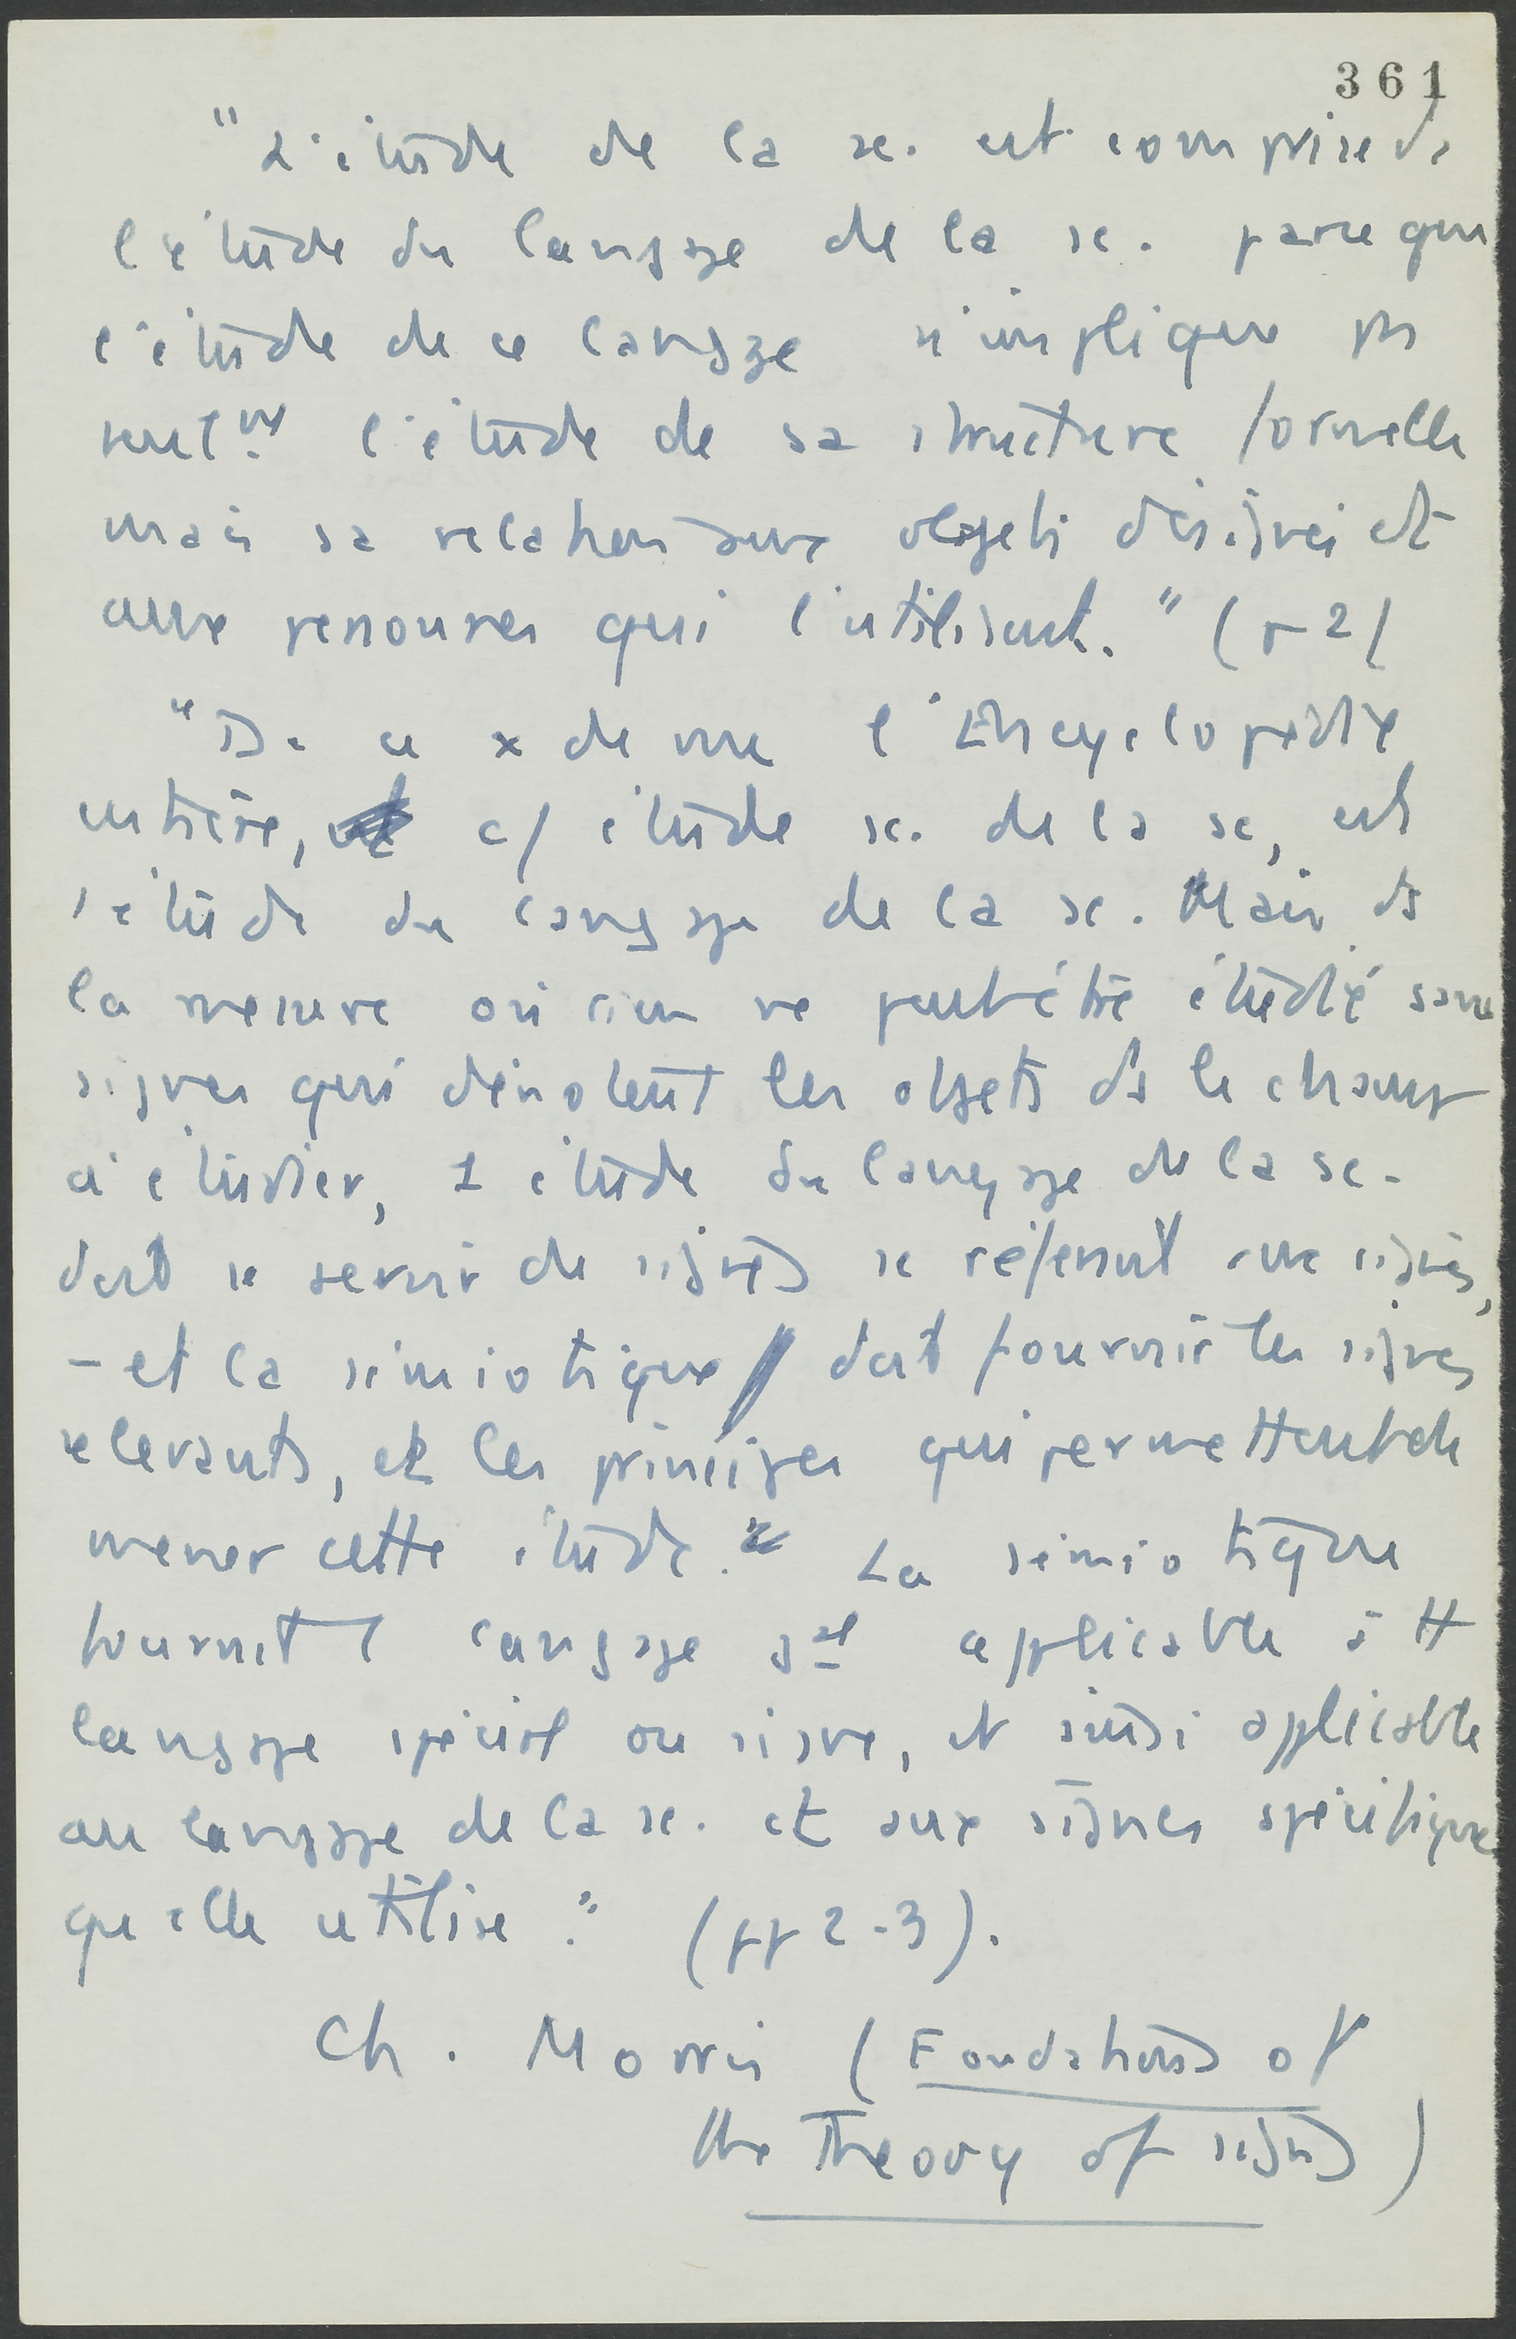 361
"L'étude de la sc. est comprise ds
l'étude du langage de la sc. parce que
l'étude de ce langage n'implique pas
seulᵐᵗ l'étude de sa structure formelle
mais sa relation aux objets désignés et
aux personnes qui l'utilisent." (p 2)
"De ce x de vue l'Encyclopédie
entière, c/ étude sc. de la sc, est
1 étude du langage de la sc. Mais ds
la mesure où rien ne peut être étudié sans
signes qui dénotent les objets ds le champ
à étudier, 1 étude du langage de la sc.
doit se servir de signes se référant aux signes,
– et la sémiotique doit fournir les signes
relevants, et les principes qui permettent de
mener cette étude. La sémiotique
fournit 1 langage gᵃˡ applicable à tt
langage spécial ou signe, et ainsi applicable
au langage de la sc. et aux signes spécifiques
qu'elle utilise." (pp 2-3).
Ch. Morris (Foudations of
the Theory of signs)